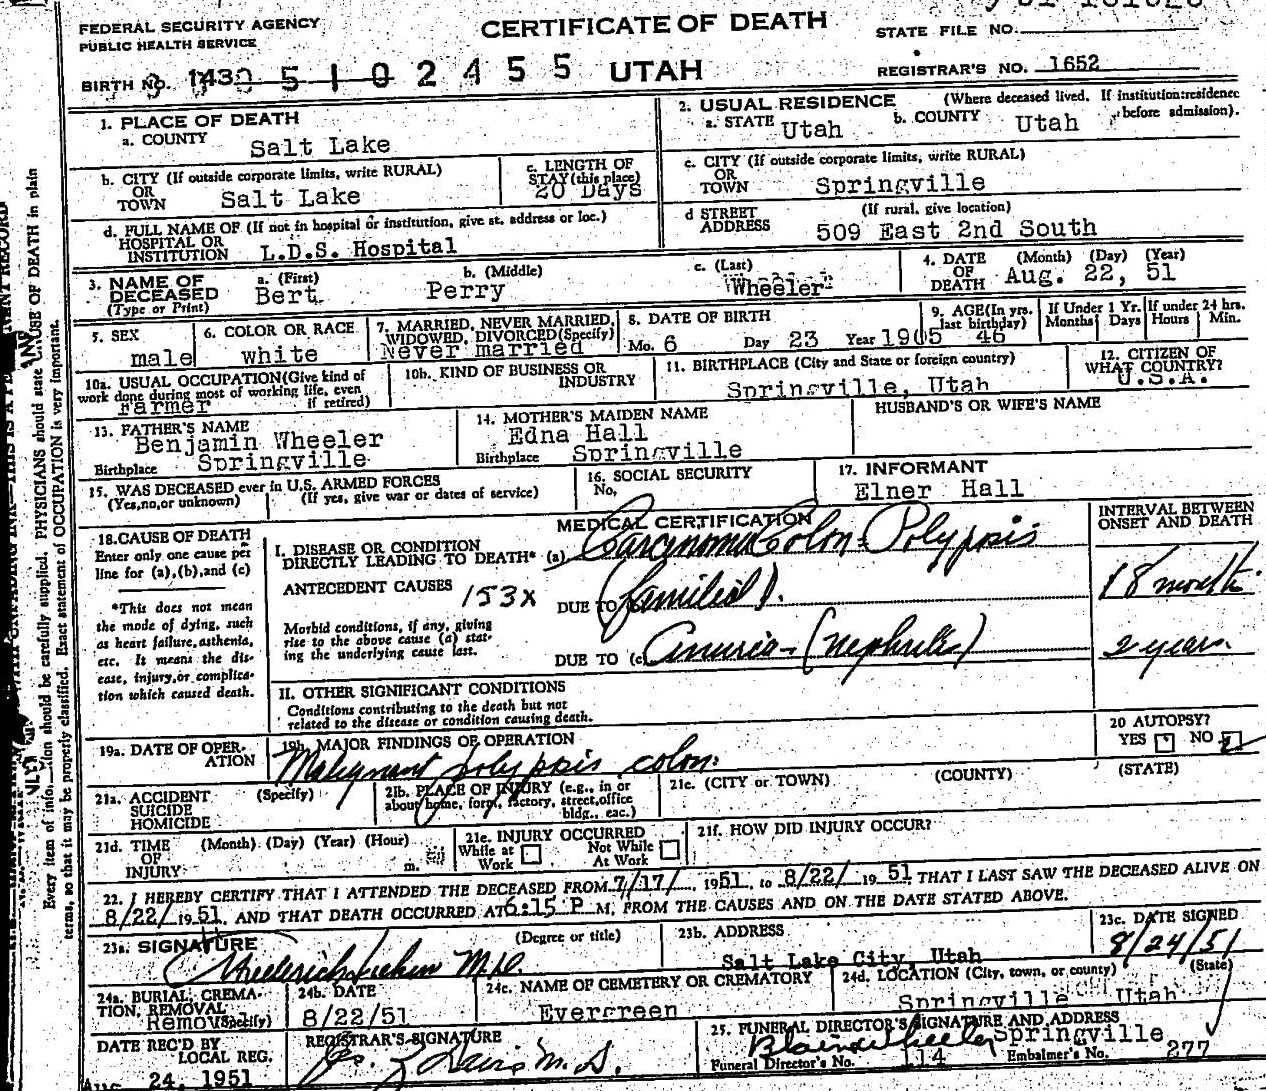 FEDERAL SECURITY AGENCY
PUBLIC HEALTH SERVICE
CERTIFICATE OF DEATH
STATE FILE NO.
BIRTH NO. 5 1 0 2 4 5 5 UTAH
REGISTRAR'S NO. 1652
1. PLACE OF DEATH
a. COUNTY
Salt Lake
2. USUAL RESIDENCE (Where deceased lived. If institution:residence before admission).
a. STATE Utah b. COUNTY Utah
b. CITY (If outside corporate limits, write RURAL)
OR
TOWN Salt Lake
c. LENGTH OF
STAY (this place)
20 Days
c. CITY (If outside corporate limits, write RURAL)
OR
TOWN Springville
d. FULL NAME OF (If not in hospital or institution, give st. address or loc.)
HOSPITAL OR
INSTITUTION L.D.S. Hospital
d STREET (If rural, give location)
ADDRESS 509 East 2nd South
3. NAME OF DECEASED
(Type or Print)
a. (First) b. (Middle) c. (Last)
Bert Perry Wheeler
4. DATE OF DEATH (Month) (Day) (Year)
Aug. 22, 51
5. SEX
male
6. COLOR OR RACE
white
7. MARRIED, NEVER MARRIED,
WIDOWED, DIVORCED(Specify)
Never married
8. DATE OF BIRTH
Mo. 6 Day 23 Year 1905
9. AGE(In yrs.
last birthday)
46
If Under 1 Yr.
Months Days
If under 24 hrs.
Hours Min.
10a. USUAL OCCUPATION(Give kind of
work done during most of working life, even
if retired)
Farmer
10b. KIND OF BUSINESS OR
INDUSTRY
11. BIRTHPLACE (City and State or foreign country)
Springville, Utah
12. CITIZEN OF
WHAT COUNTRY?
U.S.A.
13. FATHER'S NAME
Benjamin Wheeler
Birthplace Springville
14. MOTHER'S MAIDEN NAME
Edna Hall
Birthplace Springville
HUSBAND'S OR WIFE'S NAME
15. WAS DECEASED ever in U.S. ARMED FORCES
(Yes,no,or unknown) (If yes, give war or dates of service)
16. SOCIAL SECURITY
No,
17. INFORMANT
Elner Hall
18.CAUSE OF DEATH
Enter only one cause per
line for (a),(b),and (c)
*This does not mean
the mode of dying, such
as heart failure,asthenia,
etc. It means the dis-
ease, injury,or complica-
tion which caused death.
MEDICAL CERTIFICATION
I. DISEASE OR CONDITION
DIRECTLY LEADING TO DEATH* (a) Carcinoma Colon - Polyposis
ANTECEDENT CAUSES 153X
DUE TO (familial).
Morbid conditions, if any, giving
rise to the above cause (a) stat-
ing the underlying cause last.
DUE TO (c) (nephritis)
INTERVAL BETWEEN
ONSET AND DEATH
18 months
2 years.
II. OTHER SIGNIFICANT CONDITIONS
Conditions contributing to the death but not
related to the disease or condition causing death.
19a. DATE OF OPER-
ATION
19b. MAJOR FINDINGS OF OPERATION
Malignant polyposis colon.
20 AUTOPSY?
YES NO
21a. ACCIDENT (Specify)
SUICIDE
HOMICIDE
21b. PLACE OF INJURY (e.g., in or
about home, farm, factory, street,office
bldg., eac.)
21c. (CITY or TOWN) (COUNTY) (STATE)
21d. TIME (Month) (Day) (Year) (Hour)
OF
INJURY m.
21e. INJURY OCCURRED
While at Work Not While At Work
21f. HOW DID INJURY OCCUR?
22. I HEREBY CERTIFY THAT I ATTENDED THE DECEASED FROM 7/17/ , 1951, to 8/22/ 19 51, THAT I LAST SAW THE DECEASED ALIVE ON
8/22/ 19 51, AND THAT DEATH OCCURRED AT 6:15 P M. FROM THE CAUSES AND ON THE DATE STATED ABOVE.
23a. SIGNATURE (Degree or title)
M.D.
23b. ADDRESS
Salt Lake City, Utah
23c. DATE SIGNED
8/24/51
24a. BURIAL, CREMA-
TION, REMOVAL
(Specify)
Removal
24b. DATE
8/22/51
24c. NAME OF CEMETERY OR CREMATORY
Evergreen
24d. LOCATION (City, town, or county) (State)
Springville Utah
DATE REC'D BY
LOCAL REG.
Aug 24, 1951
REGISTRAR'S SIGNATURE
M.D.
25. FUNERAL DIRECTOR'S SIGNATURE AND ADDRESS
Blaine Wheeler Springville
Funeral Director's No. 114 Embalmer's No. 277
Every item of information should be carefully supplied. PHYSICIANS should state CAUSE OF DEATH in plain
terms, so that it may be properly classified. Exact statement of OCCUPATION is very important.